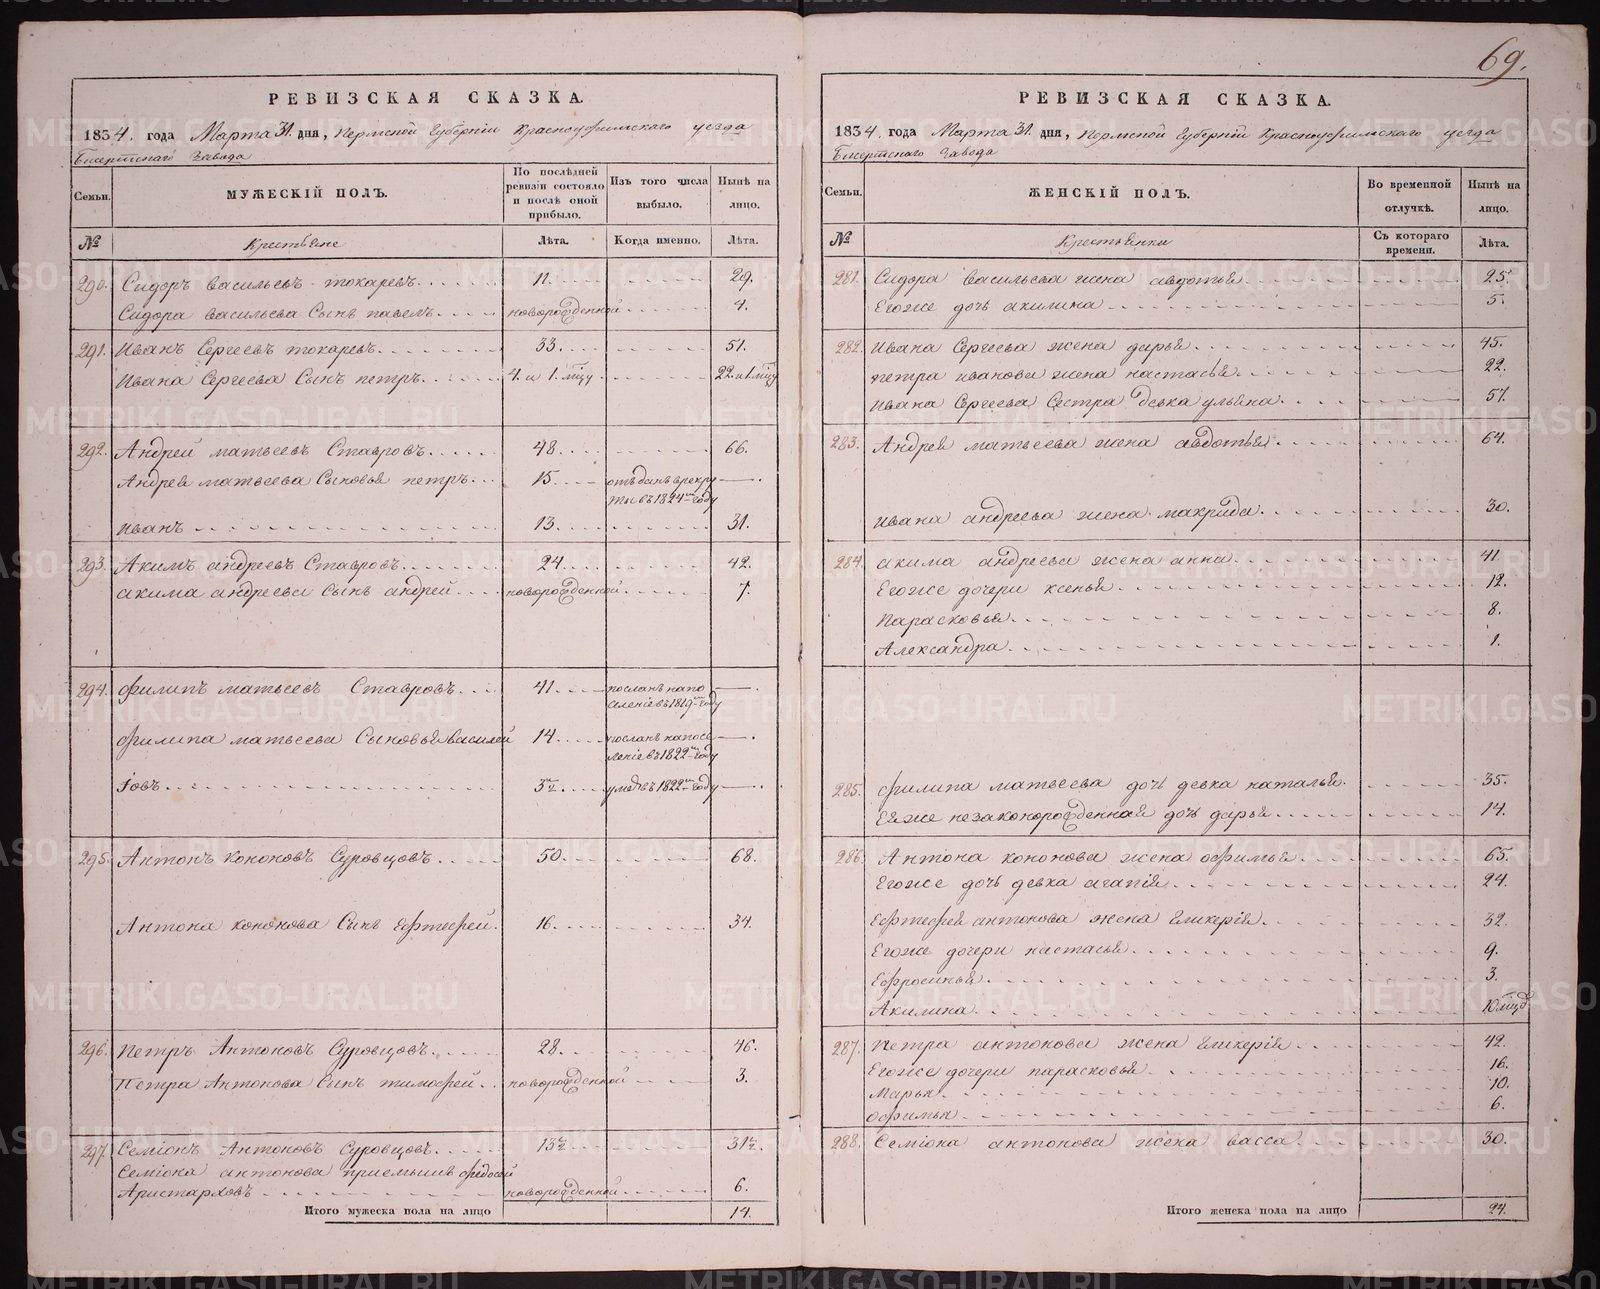 69.
РЕВИЗСКАЯ СКАЗКА.
1834. года Марта 31. дня, Пермской Губернии Красноуфимского уезда
Бисертского Завода
Семьи.
МУЖЕСКІЙ ПОЛЪ.
По послѣдней ревизіи состояло и послѣ оной прибыло.
Изъ того числа выбыло.
Нынѣ на лицо.
№
Крестьяне
Лѣта.
Когда именно.
Лѣта.
290. Сидоръ васильевъ токаревъ. 11. 29.
Сидора васильева Сынъ павелъ. новорожденной 4.
291. Иванъ Сергеевъ токаревъ. 33. 51.
Ивана Сергеева Сынъ петръ. 4. и 1. мцу 22. и 1 мцу
292. Андрей матвеевъ Ставровъ. 48. 66.
Андрея матвеева Сыновья петръ. 15. отъданъ в рекруты въ 1824м году
иванъ 13. 31.
293. Акимъ андреевъ Ставровъ. 24. 42.
акима андреева Сынъ андрей новорожденной 7.
294. филипъ матвеевъ Ставровъ. 41. посланъ на поселеніе въ 1819м году
филипа матвеева Сыновья василей 14. посланъ на поселеніе въ 1822м году
Iовъ. 3½. умре въ 1822м году
295. Антонъ кононовъ Суровцовъ. 50. 68.
Антона кононова Сынъ Ефтефей. 16. 34.
296. Петръ Антоновъ Суровцовъ. 28. 46.
Петра Антонова Сынъ тимофей. новорожденной 3.
297. Семіонъ Антоновъ Суровцовъ. 13½. 31½.
Семіона антонова приемышъ федосей
Аристарховъ новорожденной 6.
Итого мужеска пола на лицо 14.
РЕВИЗСКАЯ СКАЗКА.
1834. года Марта 31. дня, Пермской Губернии Красноуфимского уезда
Бисертского Завода
Семьи.
ЖЕНСКІЙ ПОЛЪ.
Во временной отлучкѣ.
Нынѣ на лицо.
№
Крестьянки
Съ котораго времени.
Лѣта.
281. Сидора васильева жена авдотья 25.
Егоже дочь акилина 5.
282. Ивана Сергеева жена дарья. 45.
петра иванова жена настасья. 22.
Ивана Сергеева Сестра девка ульяна. 57.
283. Андрея матвеева жена авдотья. 64.
ивана андреева жена макрида. 30.
284. акима андреева жена анна. 41
Егоже дочери ксенья. 12.
Парасковья. 8.
Александра. 1.
285. филипа матвеева дочь девка наталья. 35.
Еяже незаконорожденная дочь дарья. 14.
286. Антона кононова жена офимья. 65.
Егоже дочь девка агапія. 24.
Ефтефея антонова жена Гликерія. 32.
Егоже дочери настасья. 9.
Ефросинья. 3.
Акилина. 10 мцъ
287. Петра антонова жена Гликерія 42.
Егоже дочери парасковья. 16.
Марья. 10.
офимья 6.
288. Семіона антонова жена васса 30.
Итого женска пола на лицо 24.
METRIKI.GASO-URAL.RU